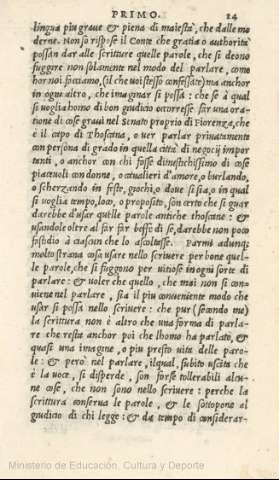 PRIMO. 24
lingua piu graue & piena di maiestà, che dalle mo
derne. Non so rispose il Conte che gratia o authorità
possan dar alle scritture quelle parole, che si deono
fuggire non solamente nel modo del parlare, come
hor noi facciamo, (il che uoi stesso confessate) ma anchor
in ogni altro, che imaginar si possa : che se à qual
si uoglia homo di bon giudicio occorresse far una ora=
tione di cose graui nel Senato proprio di Fiorenza, che
è il capo di Thoscana, o uer parlar priuatamente
con persona di grado in quella città di negocij impor
tanti, o anchor con chi fosse dimestichissimo di cose
piaceuoli con donne, o caualieri d'amore, o burlando,
o scherzando in feste, giochi, o doue si sia, o in qual
si uoglia tempo, loco, o proposito, son certo che si guar
darebbe d'usar quelle parole antiche thoscane : &
usandole oltre al far far beffe di se, darebbe non poco
fastidio à ciascun che lo ascoltasse. Parmi adunq;
molto strana cosa usare nello scriuere per bone quel=
le parole, che si fuggono per uitiose in ogni sorte di
parlare : & uoler che quello, che mai non si con=
uiene nel parlare, sia il piu conueniente modo che
usar si possa nello scriuere : che pur (secondo me)
la scrittura non è altro che una forma di parla=
re che resta anchor poi che l'homo ha parlato, &
quasi una imagine, o piu presto uita delle paro=
le : & però nel parlare, il qual, subito uscita che
è la uoce, si disperde, son forse tollerabili alcu=
ne cose, che non sono nello scriuere : perche la
scrittura conserua le parole, & le sottopone al
giudicio di chi legge : & da tempo di considerar=
Ministerio de Educación, Cultura y Deporte